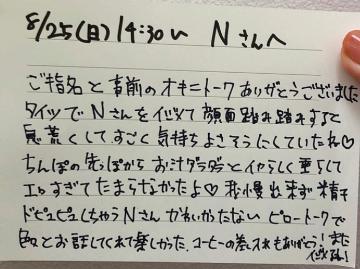 8/25(日)14:30〜 Nさんへ
ご指名と事前のオキニトークありがとうございました
タイツでNさんをイジメて顔面踏み踏みすると
息荒くしてすごく気持ちよさそうにしていたね♡
ちんぽの先っぽからお汁ダラダラとイヤらしく垂らして
エロすぎてたまらなかたよ♡我慢出来ず精子
ドピュピュしちゃうNさんかわいかたなぃピロートークで
色々とお話してくれて楽しかった。コーヒーの差し入れもありがとう!また
イジメるネ!